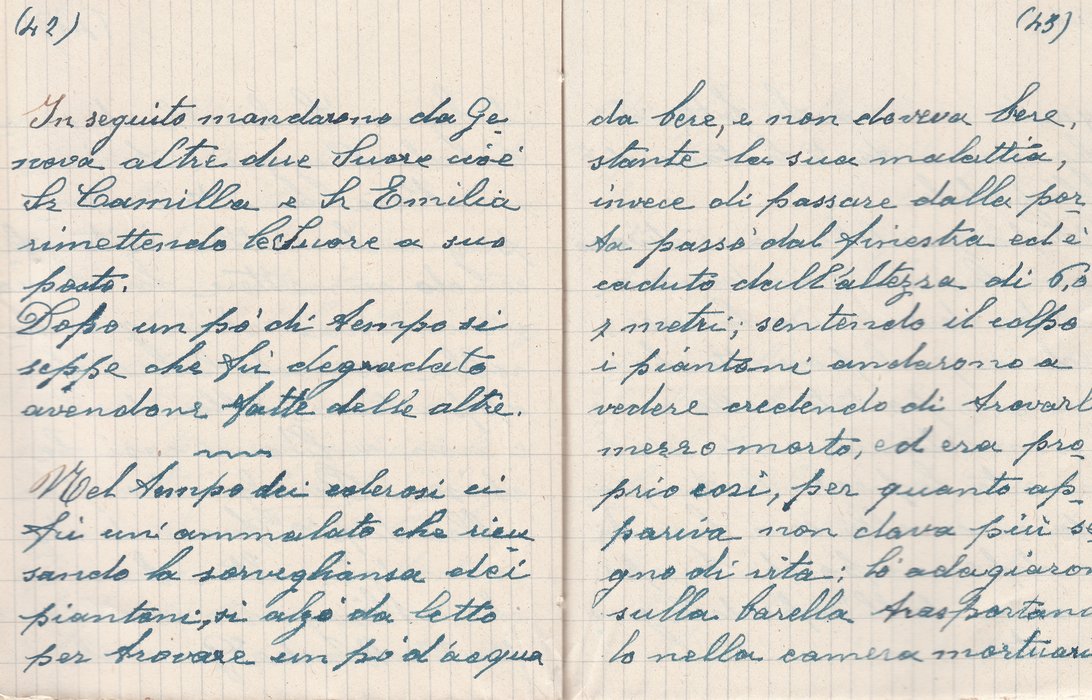 (42)
In seguito mandarono da Ge-
nova altre due Suore cioè
Sr Camilla e Sr Emilia
rimettendo le Suore a suo
posto.
Dopo un pó di tempo si
seppe che fù degradato
avendone fatte delle altre.
Nel tempo dei colerosi ci
fù un'ammalato che ricu-
sando la sorvegliansa dei
piantoni, si alzò da letto
per trovare un pó d'acqua
(43)
da bere, e non doveva bere,
stante la sua malattia,
invece di passare dalla por-
ta passò dal finestra ed è
caduto dall'altezza di 6,o
7 metri; sentendo il colpo
i piantoni andarono a
vedere credendo di trovarl
mezzo morto, ed era pro-
prio così, per quanto ap-
pariva non dava più se
gno di vita; ló adagiaron
sulla barella trasportand
lo nella camera mortuari